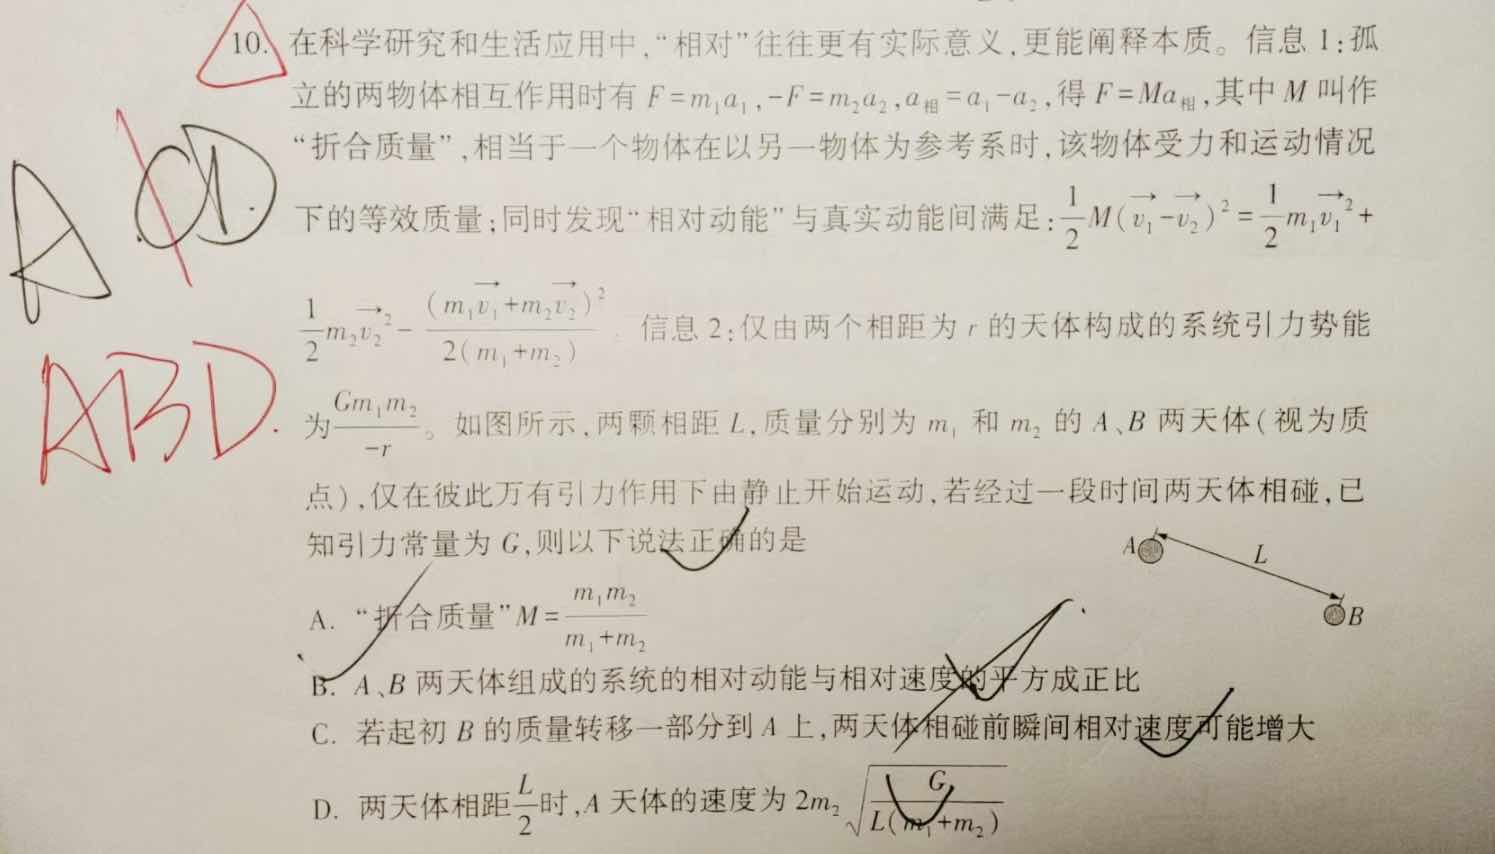 10. 在科学研究和生活应用中,“相对”往往更有实际意义,更能阐释本质。信息1:孤
立的两物体相互作用时有 F=m₁a₁,-F=m₂a₂,a相=a₁-a₂,得 F=Ma相,其中 M 叫作
“折合质量”,相当于一个物体在以另一物体为参考系时,该物体受力和运动情况
下的等效质量;同时发现“相对动能”与真实动能间满足:\frac{1}{2}M(\overrightarrow{v_1}-\overrightarrow{v_2})^2=\frac{1}{2}m_1\overrightarrow{v_1}^2+
\frac{1}{2}m_2\overrightarrow{v_2}^2-\frac{(m_1\overrightarrow{v_1}+m_2\overrightarrow{v_2})^2}{2(m_1+m_2)}。信息2:仅由两个相距为 r 的天体构成的系统引力势能
为\frac{Gm_1m_2}{-r}。如图所示,两颗相距 L,质量分别为 m₁ 和 m₂ 的 A、B 两天体(视为质
点),仅在彼此万有引力作用下由静止开始运动,若经过一段时间两天体相碰,已
知引力常量为 G,则以下说法正确的是
A
L
B
A. “折合质量”M=\frac{m_1m_2}{m_1+m_2}
B. A、B 两天体组成的系统的相对动能与相对速度的平方成正比
C. 若起初 B 的质量转移一部分到 A 上,两天体相碰前瞬间相对速度可能增大
D. 两天体相距\frac{L}{2}时,A 天体的速度为 2m_2\sqrt{\frac{G}{L(m_1+m_2)}}
A CD.
ABD.